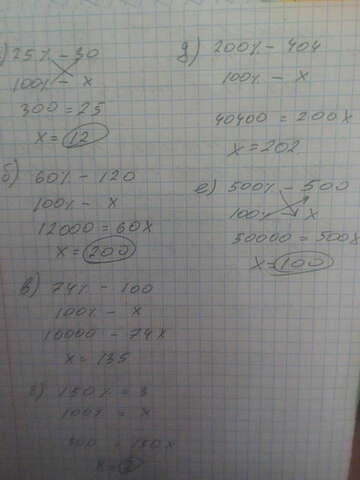 ) 25% - 30
100% - x
300 = 25
x = 12
б) 60% - 120
100% - x
12000 = 60x
x = 200
в) 74% - 100
100% - x
10000 - 74x
x = 135
г) 150% = 3
100% = x
300 = 150x
x = 2
д) 200% - 404
100% - x
40400 = 200x
x = 202
е) 500% - 500
100% - x
50000 = 500x
x = 100